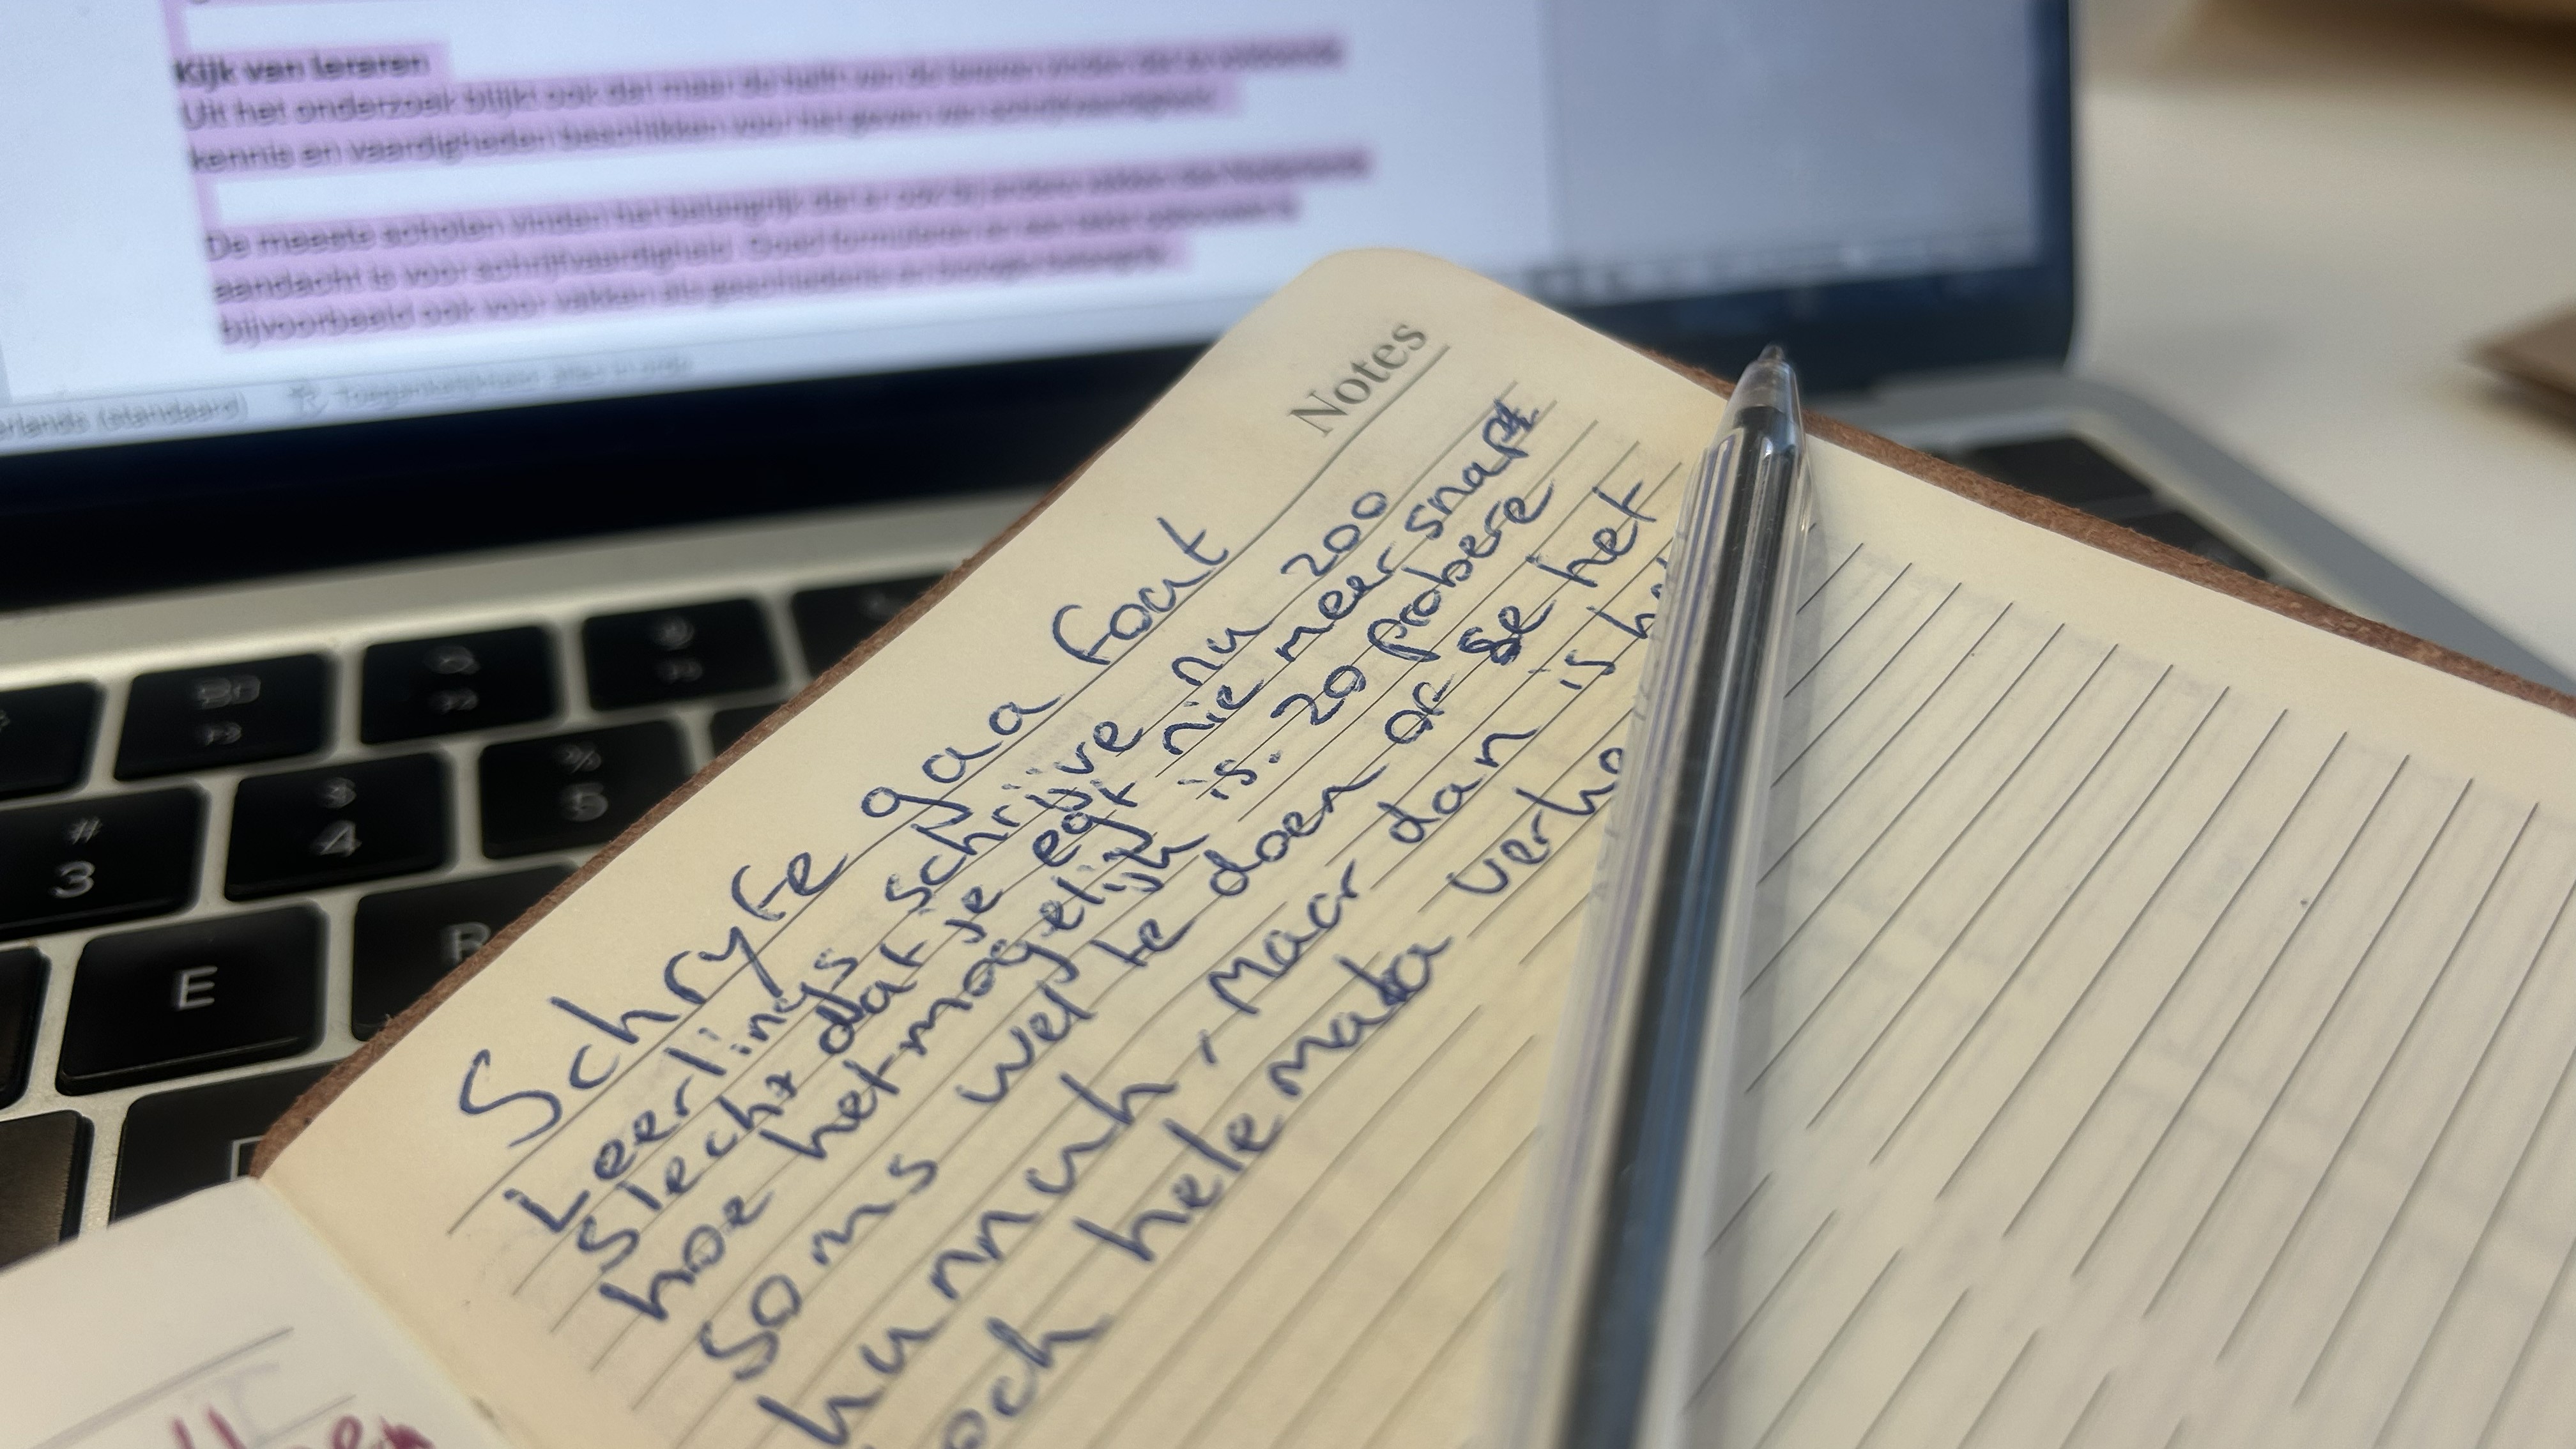 Kijk van leraren
Uit het onderzoek blijkt ook dat maar de helft van de leraren vinden dat ze voldoende
kennis en vaardigheden beschikken voor het geven van schrijfvaardigheid.
De meeste scholen vinden het belangrijk dat er ook bij andere vakken dan Nederlands
aandacht is voor schrijfvaardigheid. Goed formuleren en een tekst opbouwen is
bijvoorbeeld ook voor vakken als geschiedenis en biologie belangrijk.
erlands (standaard) Toegankelijkheid:
Notes
Schryfe gaa fout
Leerlings schrijve nu 200
slecht dat je egt nie meer snapt
hoe het mogelijk is. Zo probere
soms wel te doen of se het
kunnuh, Maar dan is h
och helemala verho
# 3
$ 4
% 5
E
R